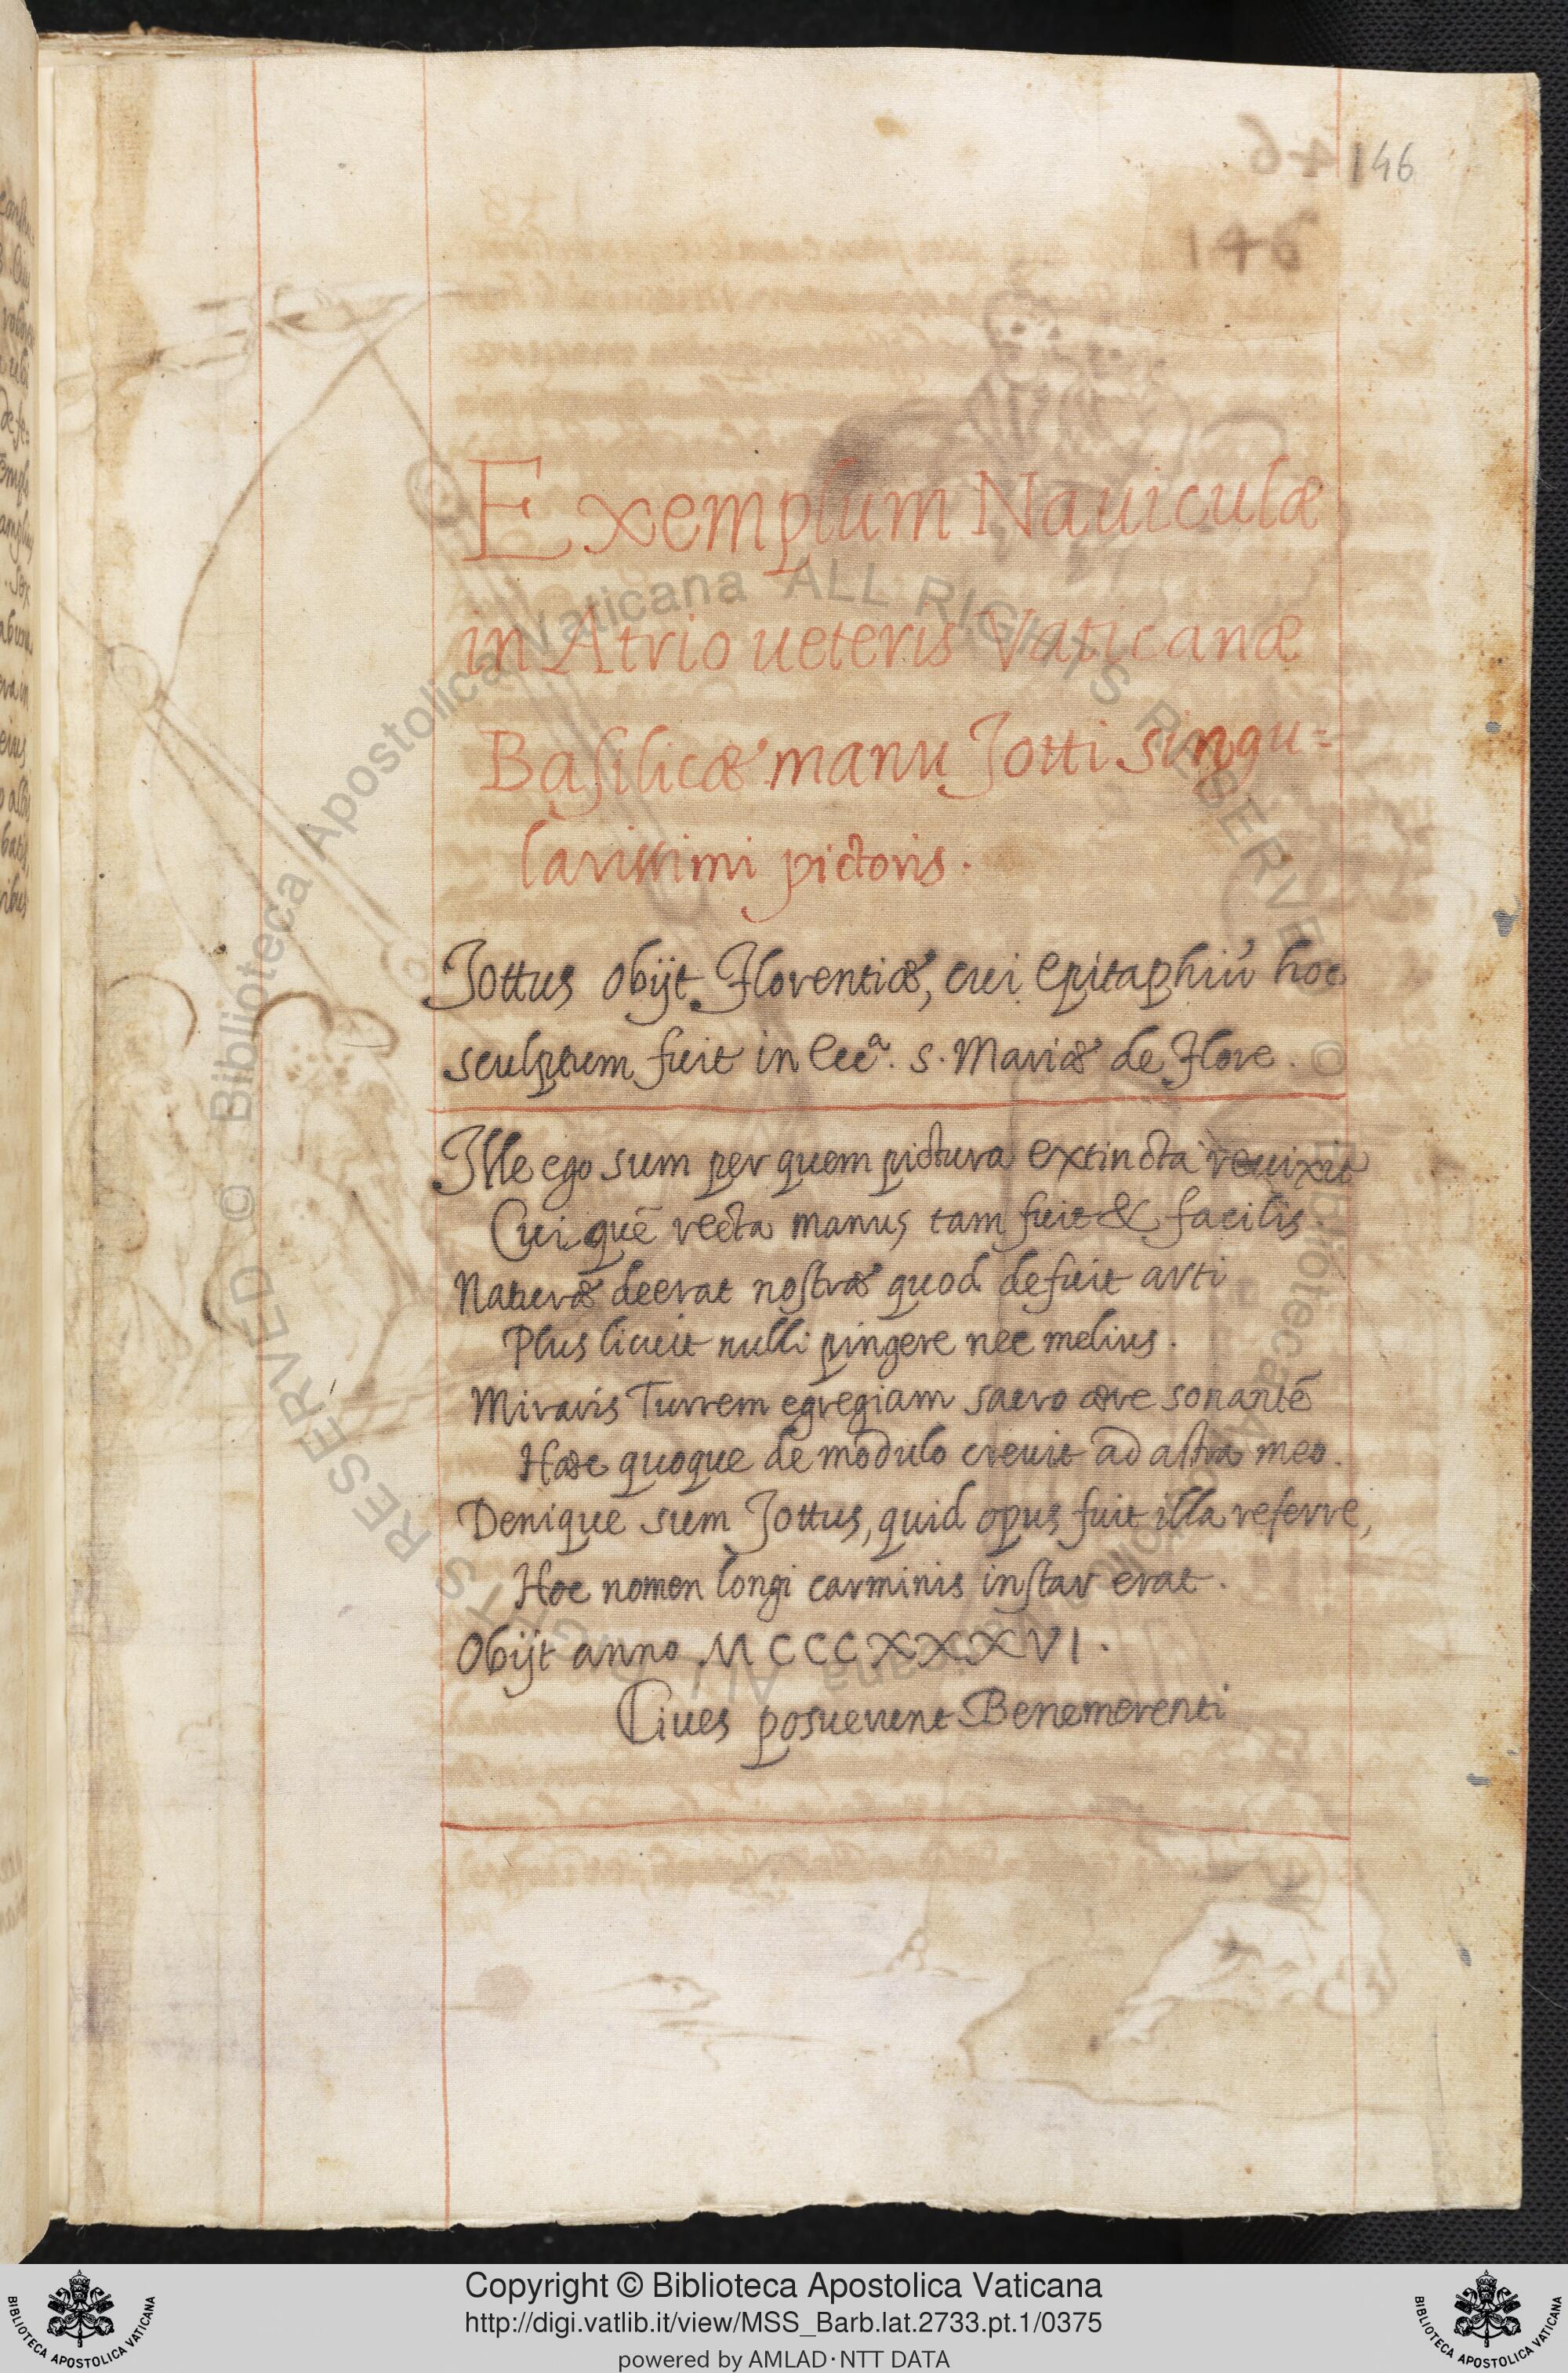 146
146
Exemplum Nauiculæ
in Atrio ueteris Vaticanæ
Basilicæ manu Jotti singu=
larissimi pictoris.
Jottus obijt Florentiæ, cui epitaphiũ hoc
sculptum fuit in Ecc.ª S. Mariæ de Flore.
Ille ego sum per quem pictura extincta reuixit
Cui quẽ recta manus tam fuit & facilis
Naturæ deerat nostræ quod defuit arti
Plus licuit nulli pingere nec melius.
Miraris Turrem egregiam sacro ære sonantẽ
Hæc quoque de modulo creuit ad astra meo.
Denique sum Jottus, quid opus fuit illa referre,
Hoc nomen longi carminis instar erat.
Obijt anno MCCCXXXVI.
Ciues posuerunt Benemerenti
Copyright © Biblioteca Apostolica Vaticana
http://digi.vatlib.it/view/MSS_Barb.lat.2733.pt.1/0375
powered by AMLAD·NTT DATA
BIBLIOTECA APOSTOLICA VATICANA
BIBLIOTECA APOSTOLICA VATICANA
© Biblioteca Apostolica Vaticana ALL RIGHTS RESERVED © Biblioteca Apostolica Vaticana ALL RIGHTS RESERVED